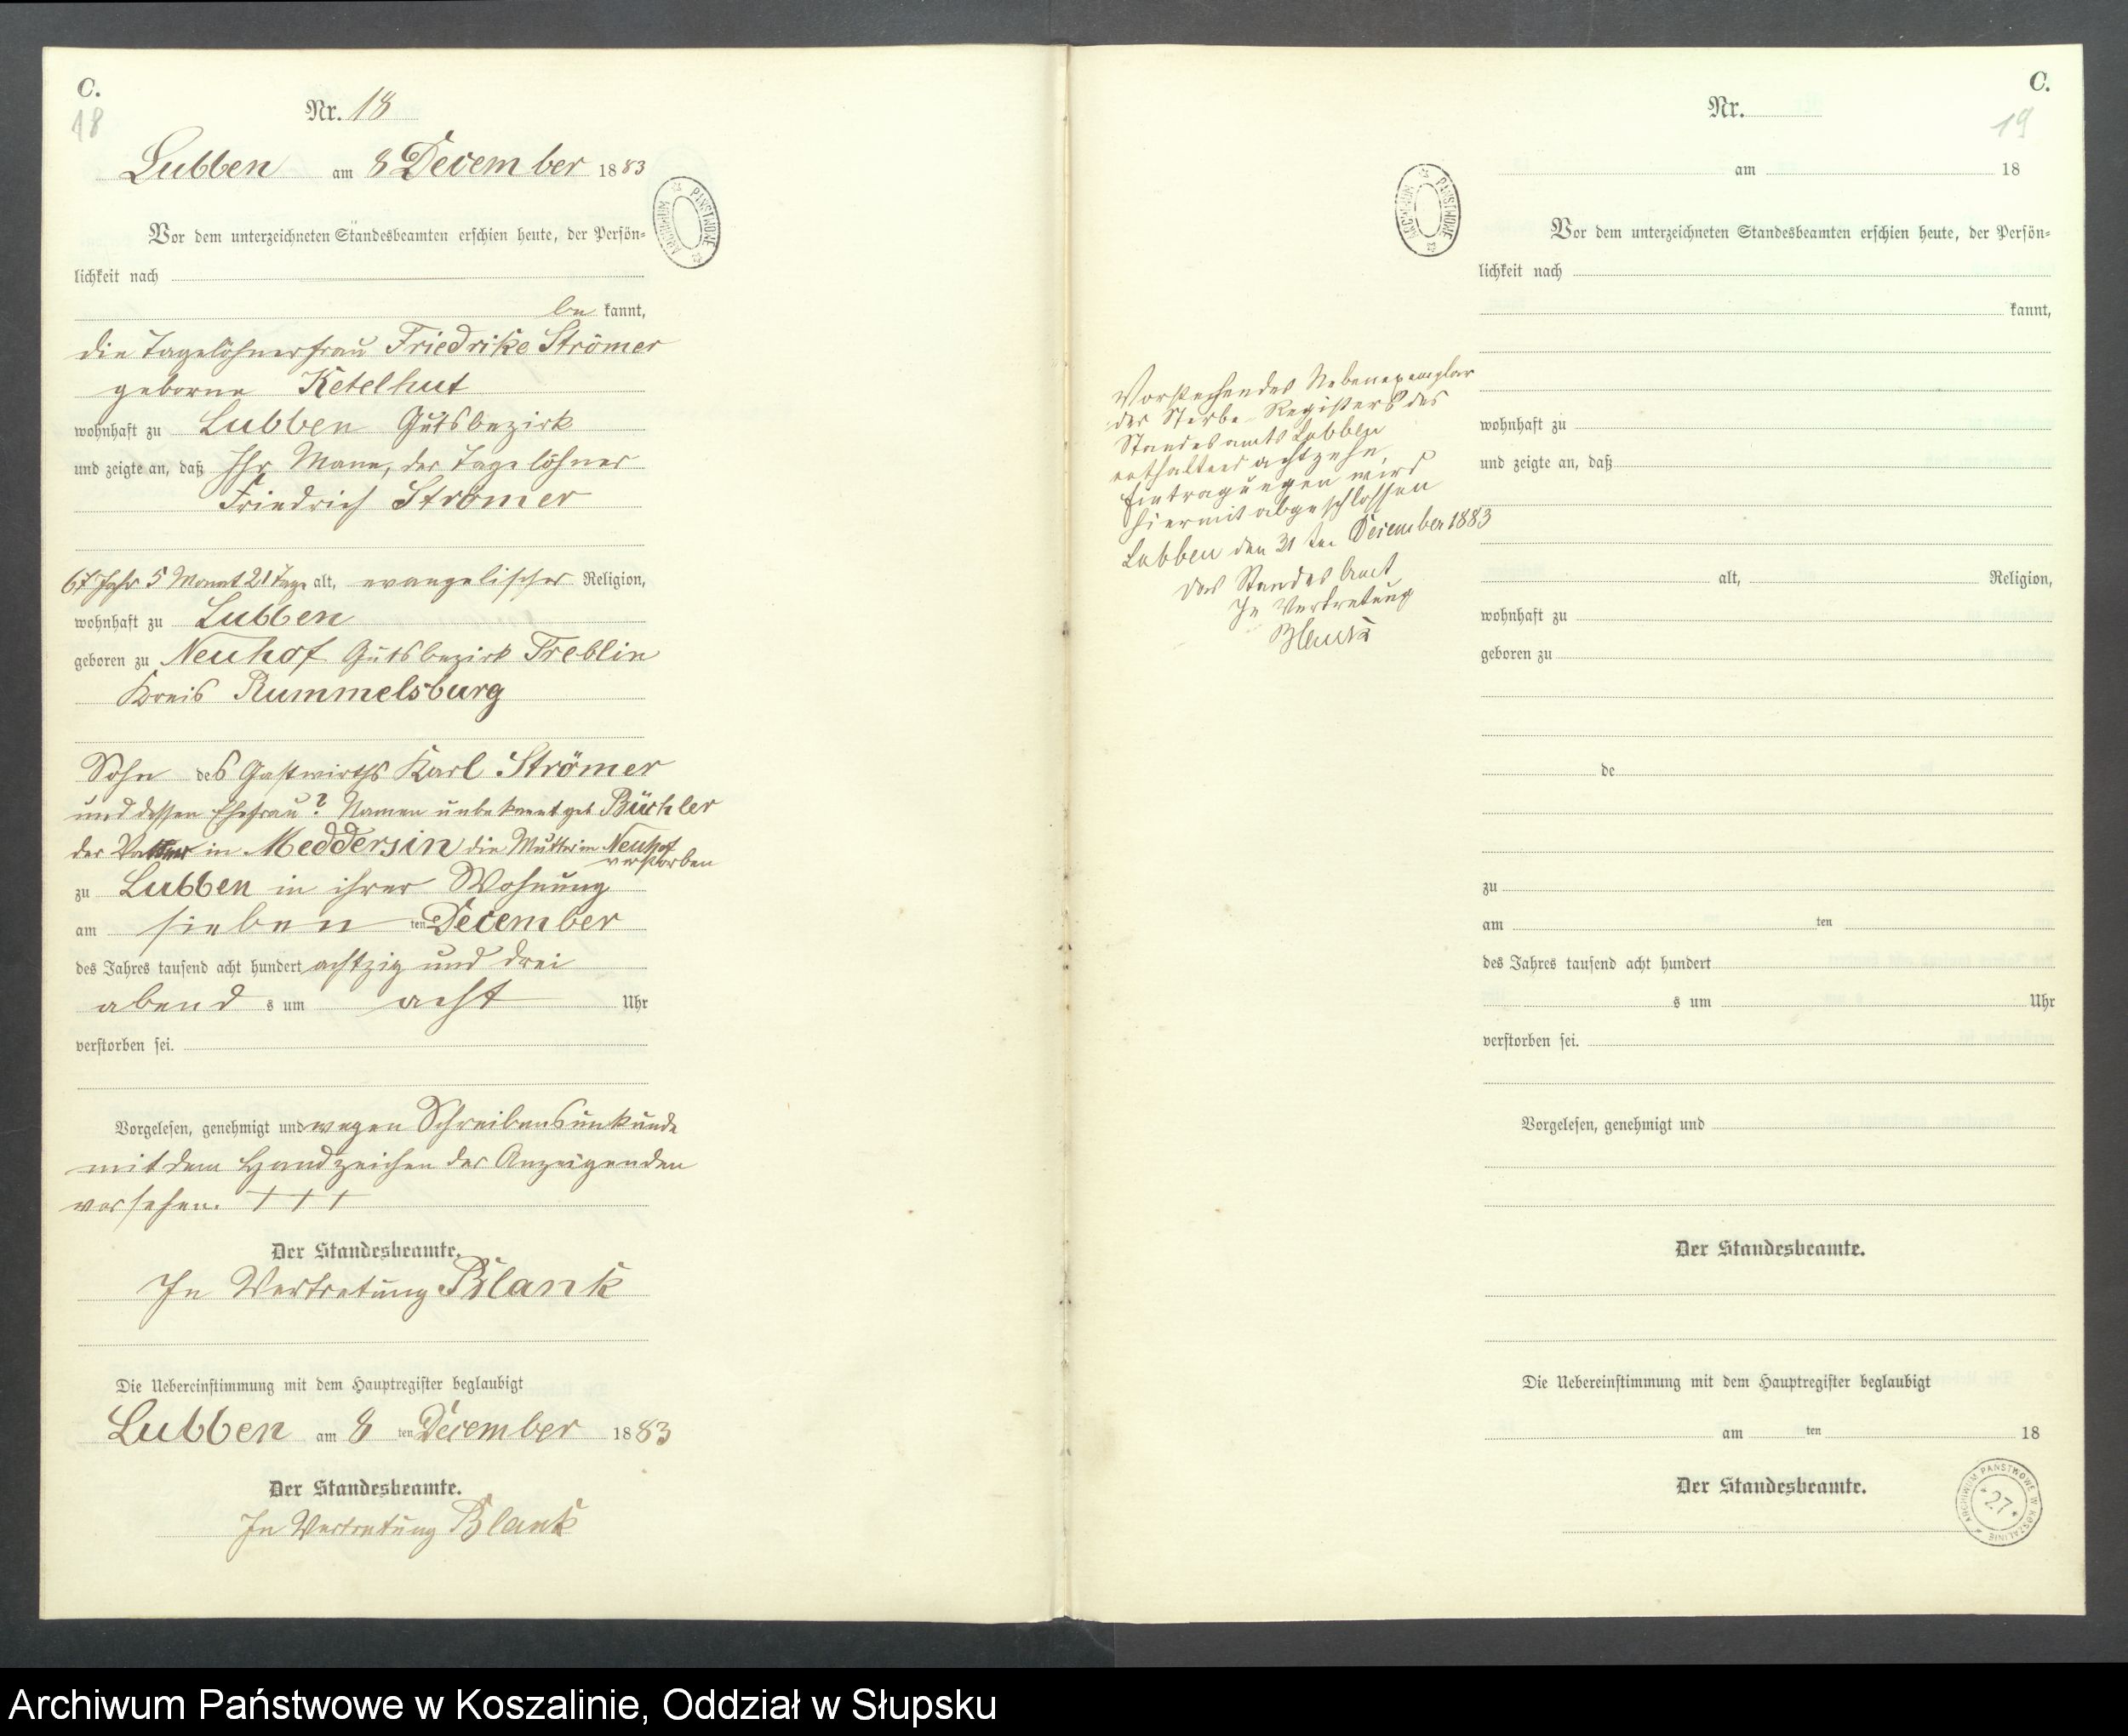 C.
18
Nr. 18
Lubben am 8 December 1883
Vor dem unterzeichneten Standesbeamten erschien heute, der Persön-
lichkeit nach
be kannt,
die Tagelöhnerfrau Friedrike Strömer
geborne Ketelhut
wohnhaft zu Lubben Gutsbezirk
und zeigte an, daß Ihr Mann, der Tagelöhner
Friedrich Strömer
67 Jahr 5 Monat 21 Tage alt, evangelischer Religion,
wohnhaft zu Lubben
geboren zu Neuhof Gutsbezirk Treblin
Kreis Rummelsburg
Sohn des Gastwirths Karl Strömer
und dessen Ehefrau ? Namen unbekannt geb Büchler
der Vater in Meddersin die Mutter in Neuhof
verstorben
zu Lubben in ihrer Wohnung
am sieben ten December
des Jahres tausend acht hundert achtzig und drei
abend s um acht Uhr
verstorben sei.
Vorgelesen, genehmigt und wegen Schreibensunkunde
mit dem Handzeichen der Anzeigenden
versehen. + + +
Der Standesbeamte.
In Vertretung Blank
Die Uebereinstimmung mit dem Hauptregister beglaubigt
Lubben am 8 ten December 1883
Der Standesbeamte.
In Vertretung Blank
ARCHIWUM PAŃSTWOWE
Vorstehendes Nebenexemplar
des Sterbe-Registers des
Standesamts Lubben
enthaltend achtzehn
Eintragungen wird
hiermit abgeschlossen
Lubben den 31 ten December 1883
Das Standes Amt
In Vertretung
Blank
ARCHIWUM PAŃSTWOWE
C.
19
Nr.
am 18
Vor dem unterzeichneten Standesbeamten erschien heute, der Persön-
lichkeit nach
kannt,
wohnhaft zu
und zeigte an, daß
alt, Religion,
wohnhaft zu
geboren zu
de
zu
am ten
des Jahres tausend acht hundert
s um Uhr
verstorben sei.
Vorgelesen, genehmigt und
Der Standesbeamte.
Die Uebereinstimmung mit dem Hauptregister beglaubigt
am ten 18
Der Standesbeamte.
ARCHIWUM PAŃSTWOWE W KOSZALINIE
*27*
Archiwum Państwowe w Koszalinie, Oddział w Słupsku